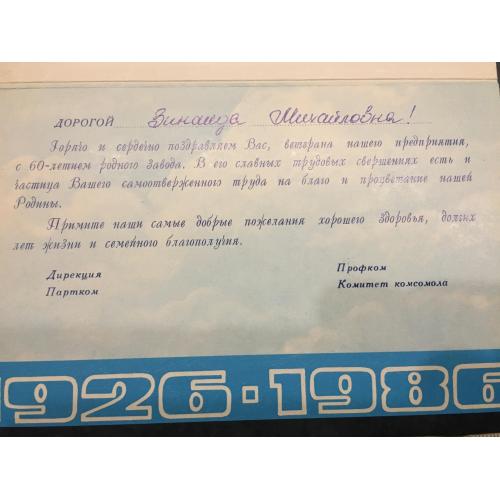 ДОРОГОЙ Зинаида Михайловна!
Горячо и сердечно поздравляем Вас, ветерана нашего предприятия,
с 60-летием родного завода. В его славных трудовых свершениях есть и
частица Вашего самоотверженного труда на благо и процветание нашей
Родины.
Примите наши самые добрые пожелания хорошего здоровья, долгих
лет жизни и семейного благополучия.
Дирекция
Партком
Профком
Комитет комсомола
1926·1986